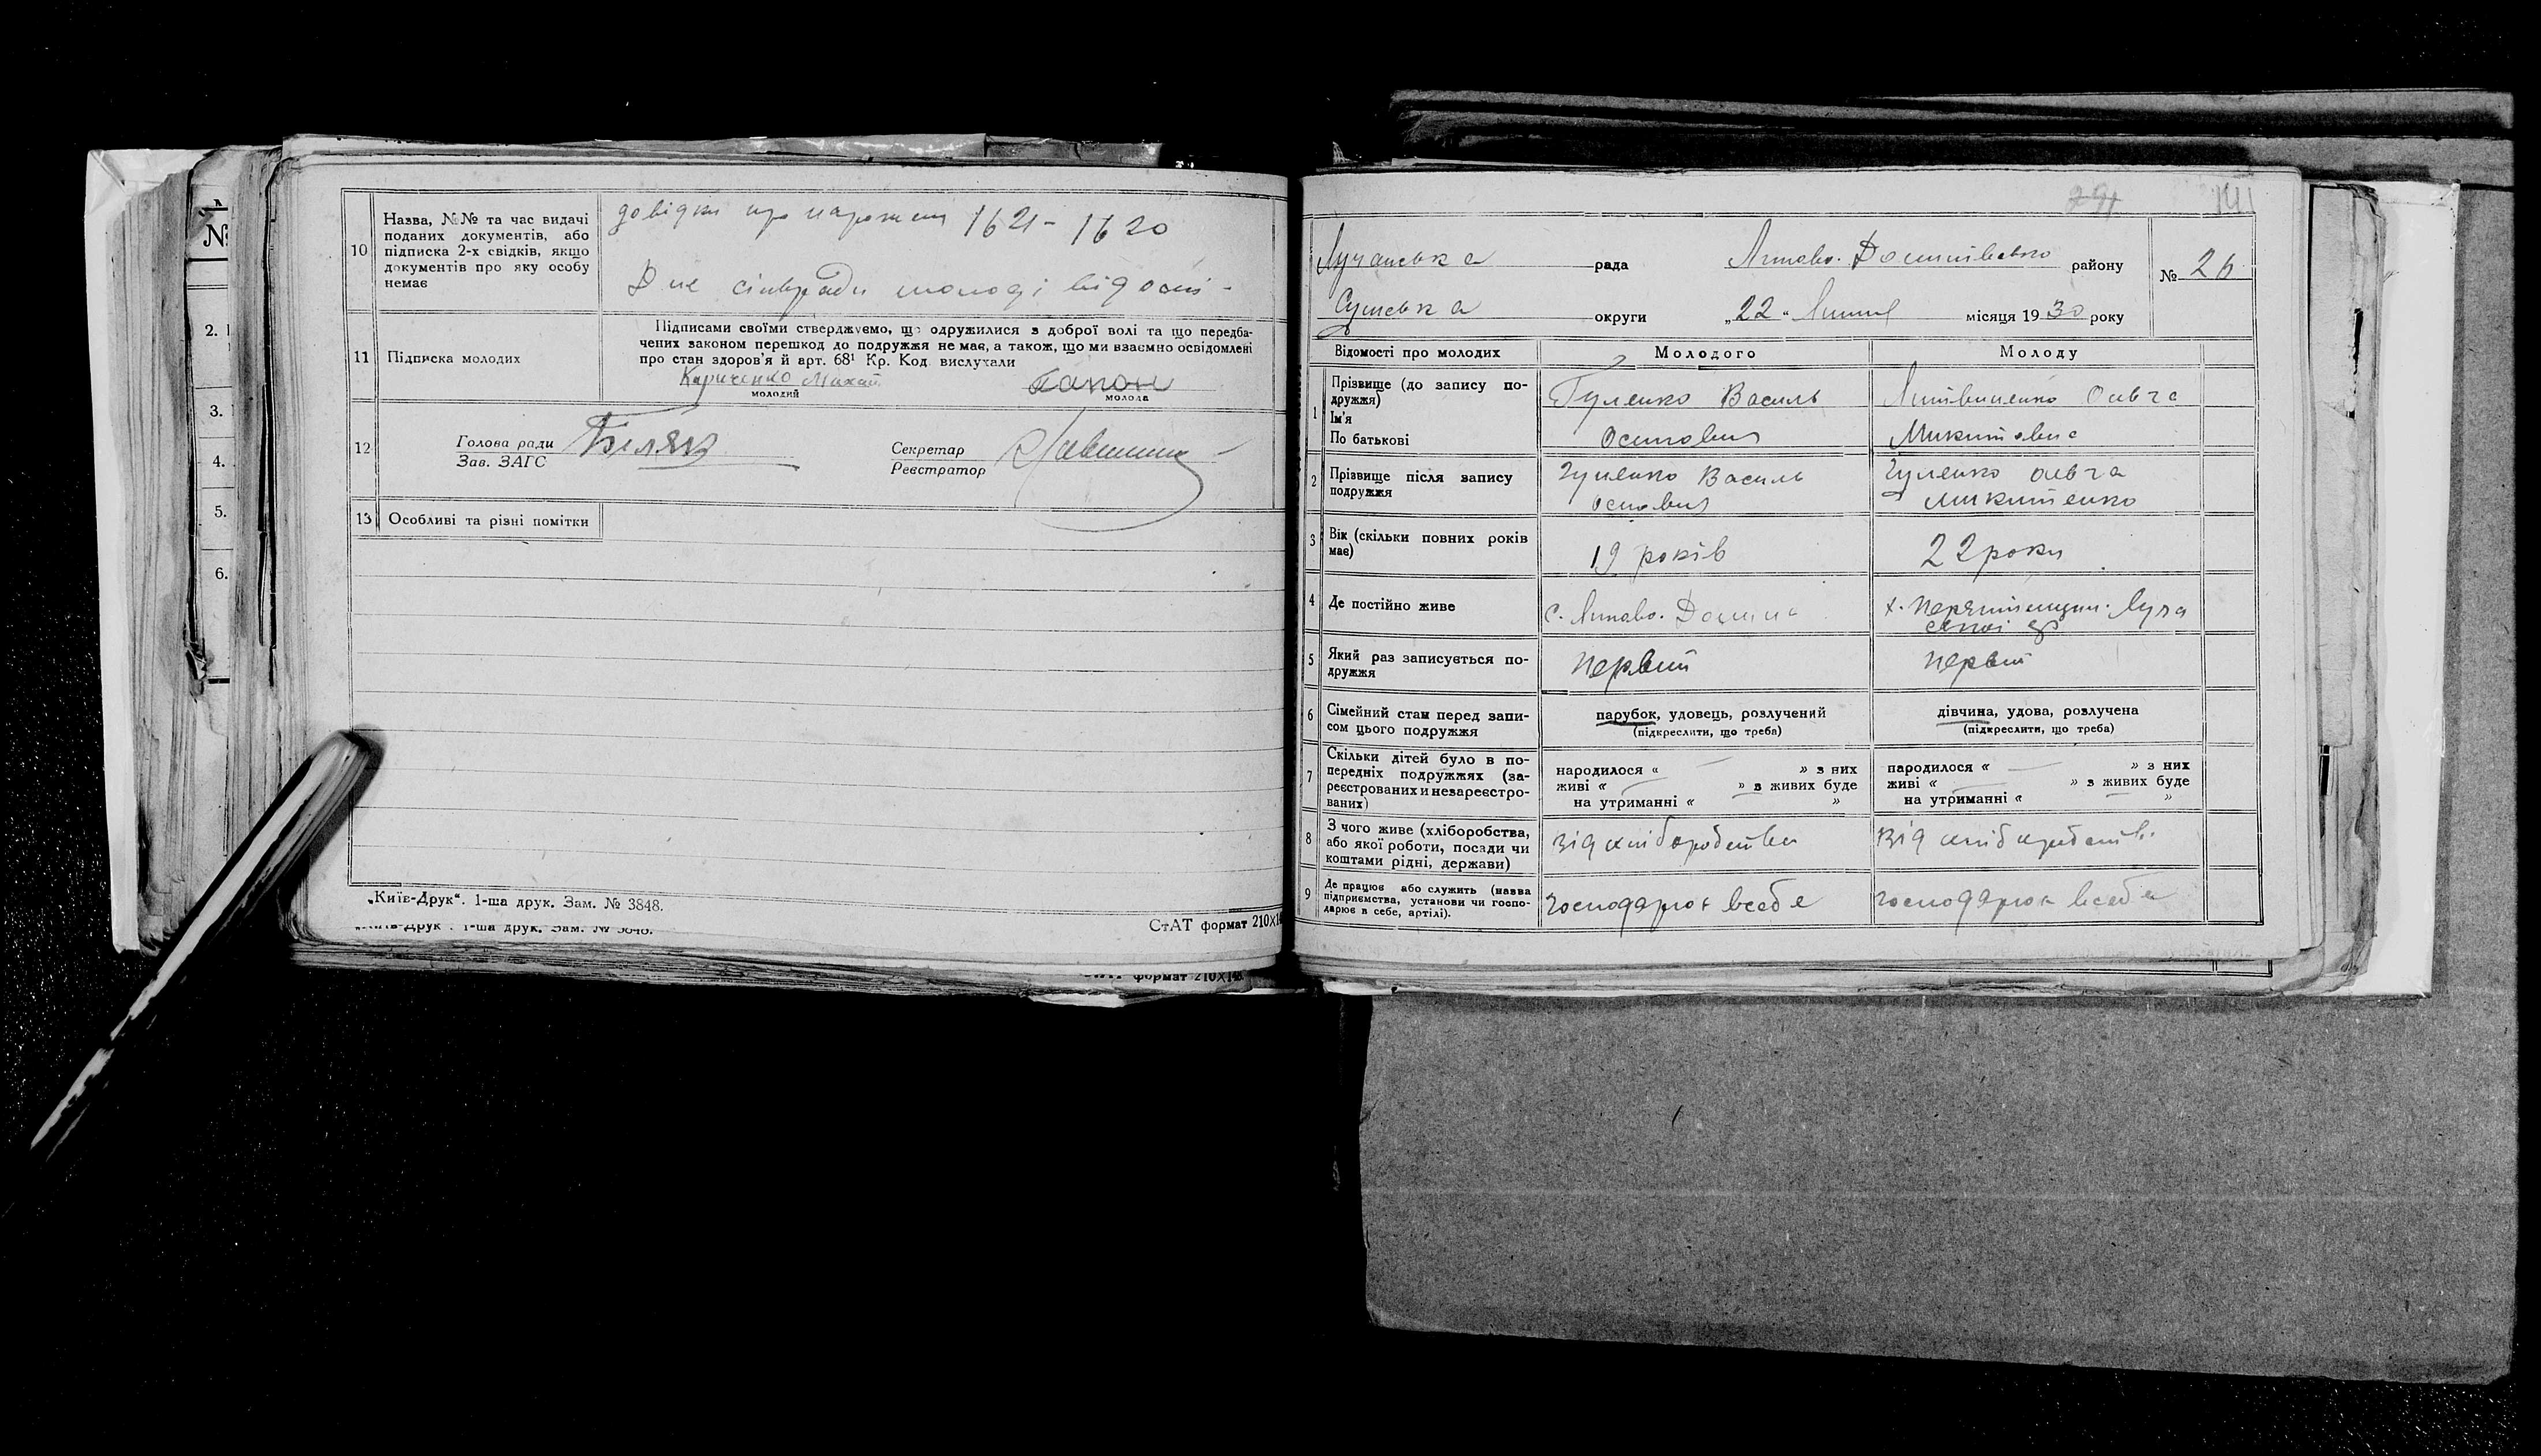 10
Назва, №№ та час видачі
поданих документів, або
підписка 2-х свідків, якщо
документів про яку особу
немає
довідки про 1621 - 1620
11
Підписка молодих
Підписами своїми стверджуємо, що одружилися з доброї волі та що передба-
чених законом перешкод до подружжя не має, а також, що ми взаємно освідомлені
про стан здоров'я й арт. 68¹ Кр. Код. вислухали
молодий
молода
12
Голова ради
Зав. ЗАГС
Секретар
Реєстратор
13 Особливі та різні помітки
„Київ-Друк“. 1-ша друк. Зам. № 3848.
СтАТ формат 210X14
формат 210X148
№
2.
3.
4.
5.
6.
141
Лучанська рада Липово-Долинівсько району № 26
Сумська округи „22“ Липня місяця 1930 року
Відомості про молодих Молодого Молоду
1
Прізвище (до запису по-
дружжя)
Ім'я
По батькові
Гуленко Василь
Осипович
Литвиненко Ольга
Микитовна
2
Прізвище після запису
подружжя
Гуленко Василь
Осипович
Гуленко Ольга
Микитенко
3
Вік (скільки повних років
має)
19 років
22 роки
4 Де постійно живе
с. Липово-Долина
5
Який раз записується по-
дружжя
Первий
Первий
6
Сімейний стан перед запи-
сом цього подружжя
парубок, удовець, розлучений
(підкреслити, що треба)
дівчина, удова, розлучена
(підкреслити, що треба)
7
Скільки дітей було в по-
передніх подружжях (за-
реєстрованих и незареєстро-
ваних)
народилося « — » з них
живі « — » з живих буде
на утриманні « — »
народилося « — » з них
живі « — » з живих буде
на утриманні « — »
8
З чого живе (хліборобства,
або якої роботи, посади чи
коштами рідні, держави)
від хліборобства
від хліборобств.
9
Де працює або служить (назва
підприємства, установи чи госпо-
дарює в себе, артілі).
господарює в себе
господарює в себе